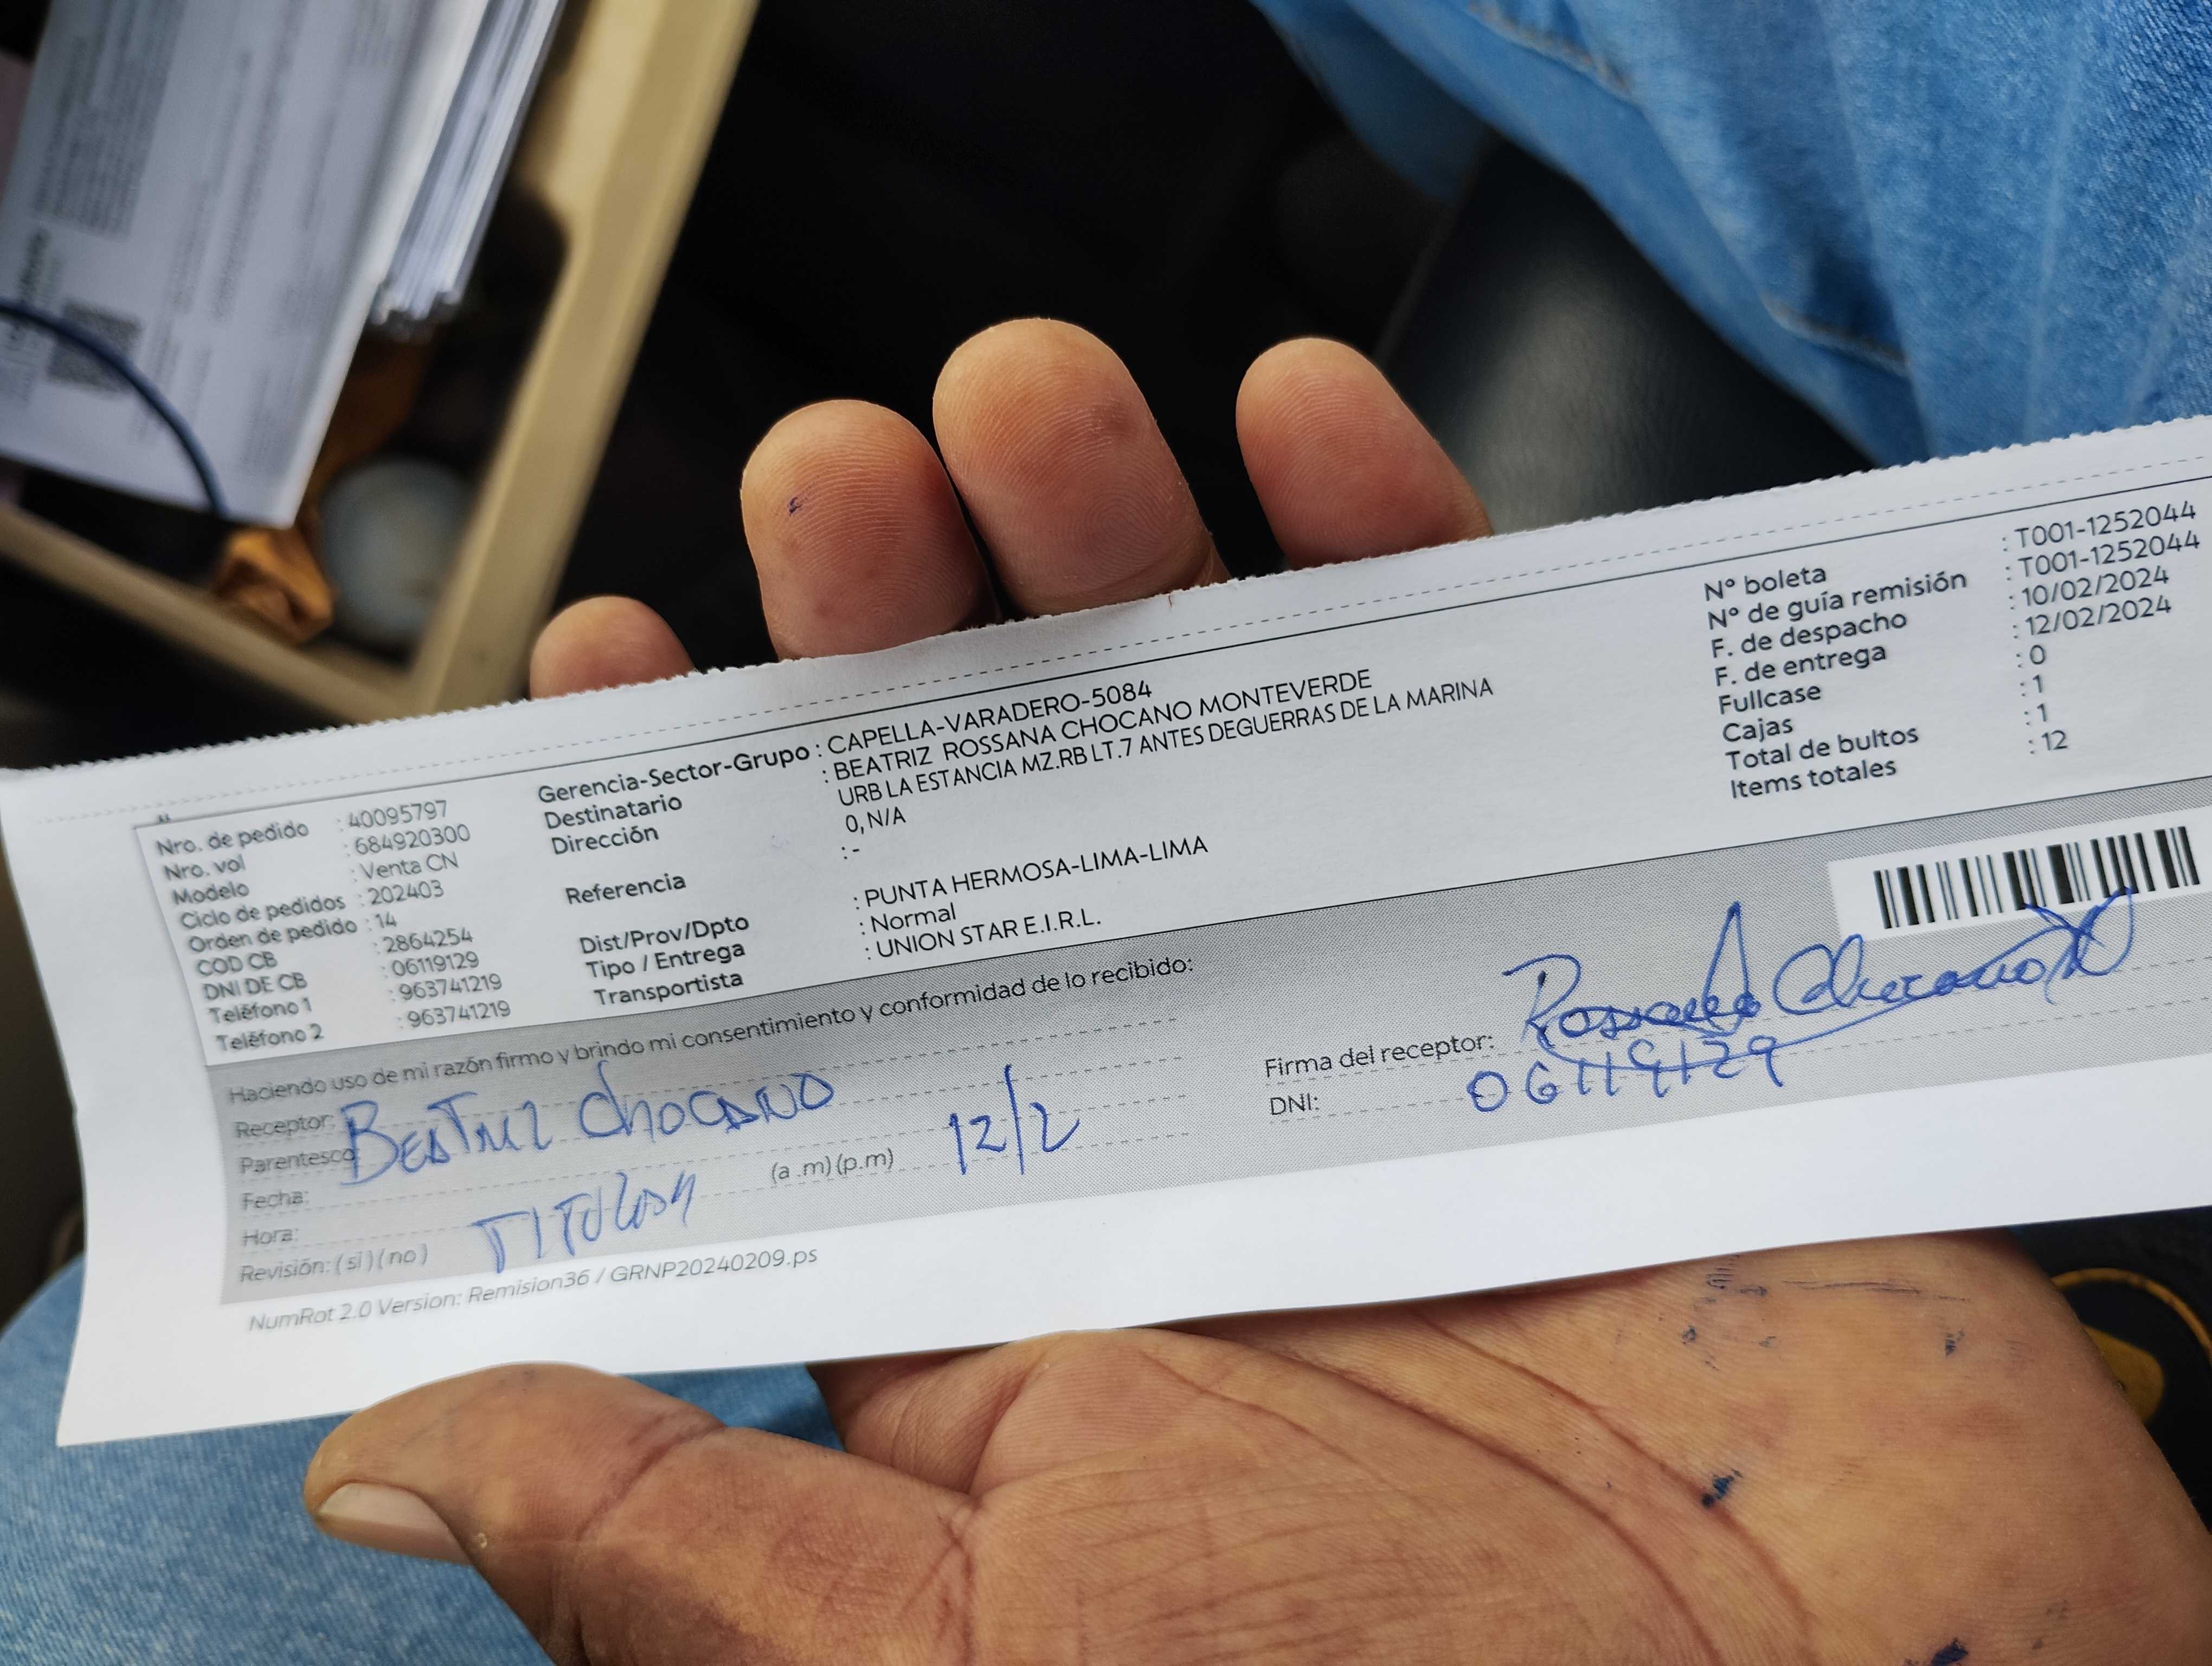 Nro. de pedido : 40095797
Nro. vol : 684920300
Modelo : Venta CN
Ciclo de pedidos : 202403
Orden de pedido : 14
COD CB : 2864254
DNI DE CB : 06119129
Teléfono 1 : 963741219
Teléfono 2 : 963741219
Gerencia-Sector-Grupo : CAPELLA-VARADERO-5084
Destinatario : BEATRIZ ROSSANA CHOCANO MONTEVERDE
Dirección URB LA ESTANCIA MZ.RB LT.7 ANTES DEGUERRAS DE LA MARINA
0, N/A
Referencia : -
Dist/Prov/Dpto : PUNTA HERMOSA-LIMA-LIMA
Tipo / Entrega : Normal
Transportista : UNION STAR E.I.R.L.
N° boleta : T001-1252044
N° de guía remisión : T001-1252044
F. de despacho : 10/02/2024
F. de entrega : 12/02/2024
Fullcase : 0
Cajas : 1
Total de bultos : 1
Items totales : 12
Haciendo uso de mi razón firmo y brindo mi consentimiento y conformidad de lo recibido:
Receptor: BEATRIZ CHOCANO
Parentesco
Fecha:
Hora: (a .m) (p.m) 12/2
Revisión: ( si ) ( no ) TITULAR
Firma del receptor: Rossana Chocano
DNI: 06119129
NumRot 2.0 Version: Remision36 / GRNP20240209.ps